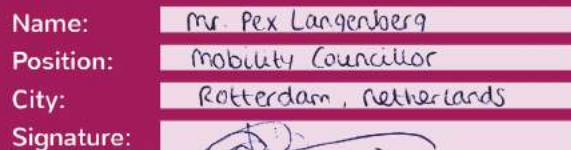 Name: Mr. Pex Langenberg
Position: Mobility Councillor
City: Rotterdam, Netherlands
Signature: